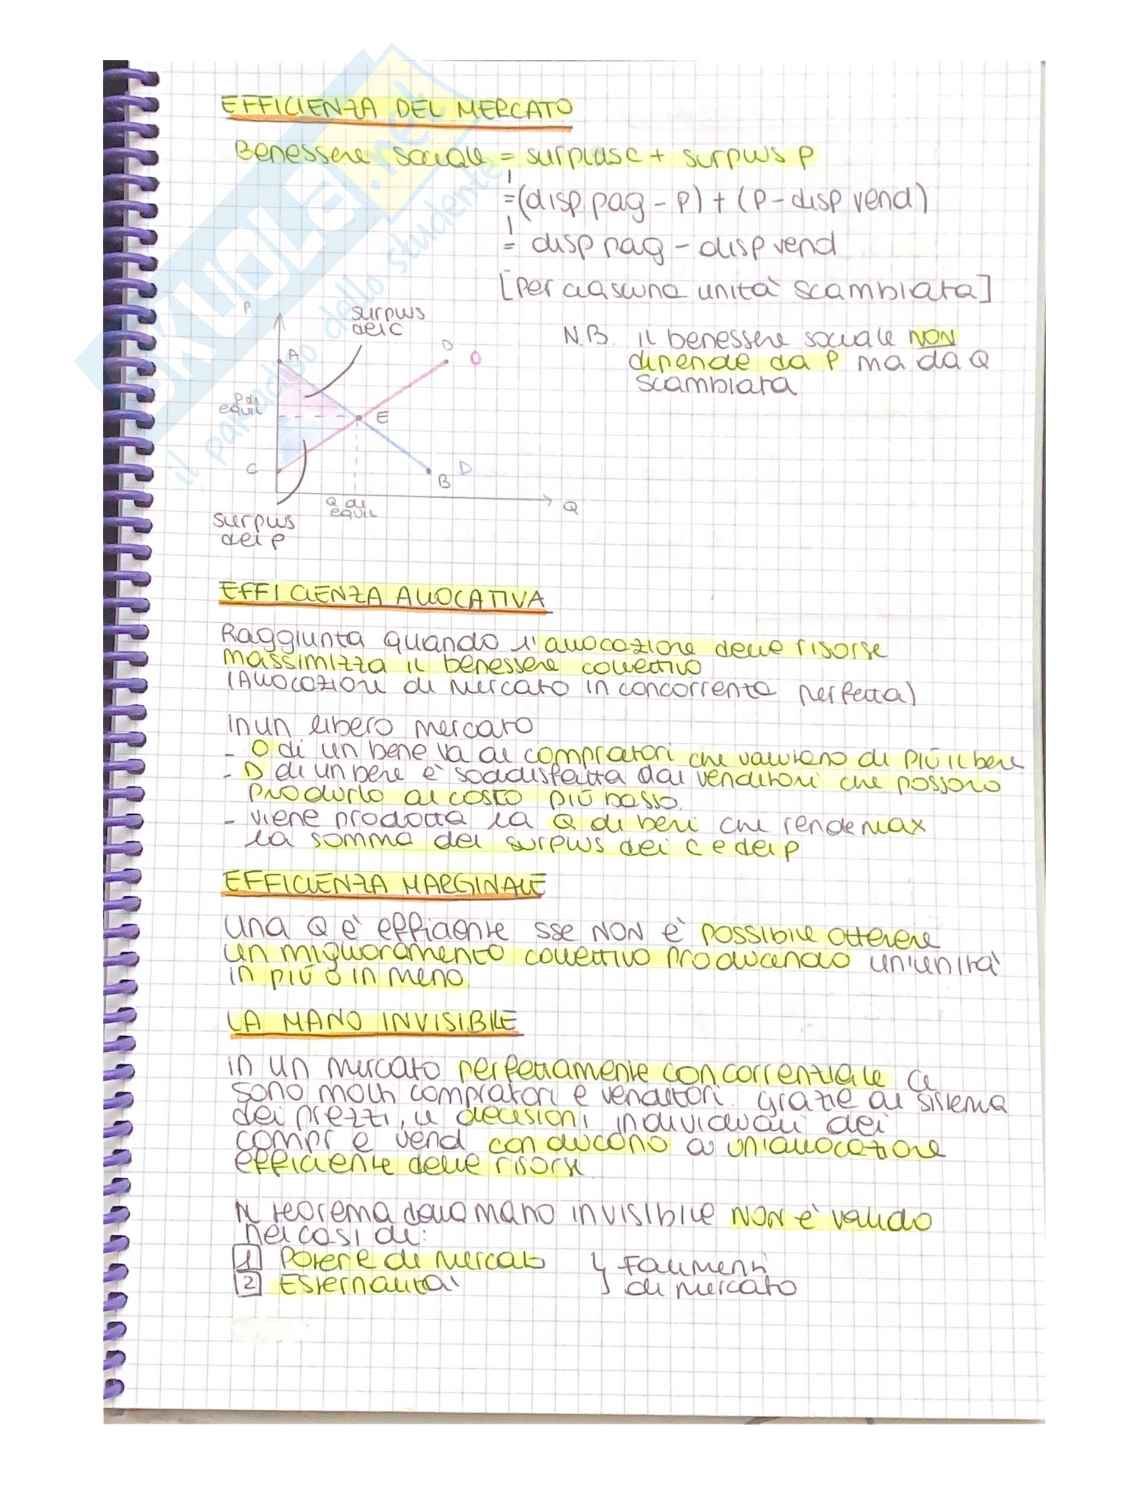 EFFICIENZA DEL MERCATO
Benessere sociale = surplus c + surplus p
= (disp pag - P) + (P - disp vend)
= disp pag - disp vend
[Per ciascuna unità scambiata]
N.B. il benessere sociale NON
dipende da P ma da Q
scambiata
P
surplus
dei C
A
D
O
P di
equil
E
C
B
D
Q di
equil
Q
surplus
dei P
EFFICIENZA ALLOCATIVA
Raggiunta quando l'allocazione delle risorse
massimizza il benessere collettivo
(Allocazioni di mercato in concorrenza perfetta)
in un libero mercato
- O di un bene va ai compratori che valutano di più il bene
- D di un bene è soddisfatta dai venditori che possono
produrlo al costo più basso
- viene prodotta la Q di beni che rende max
la somma dei surplus dei C e dei P
EFFICIENZA MARGINALE
Una Q è efficiente sse NON è possibile ottenere
un miglioramento collettivo producendo un'unità
in più o in meno
LA MANO INVISIBILE
in un mercato perfettamente concorrenziale ci
sono molti compratori e venditori. grazie al sistema
dei prezzi, le decisioni individuali dei
compr e vend conducono a un'allocazione
efficiente delle risorse
Il teorema della mano invisibile NON è valido
nei casi di:
1 Potere di mercato
2 Esternalità
Fallimenti
di mercato
SKUOLA.net
il paradiso dello studente